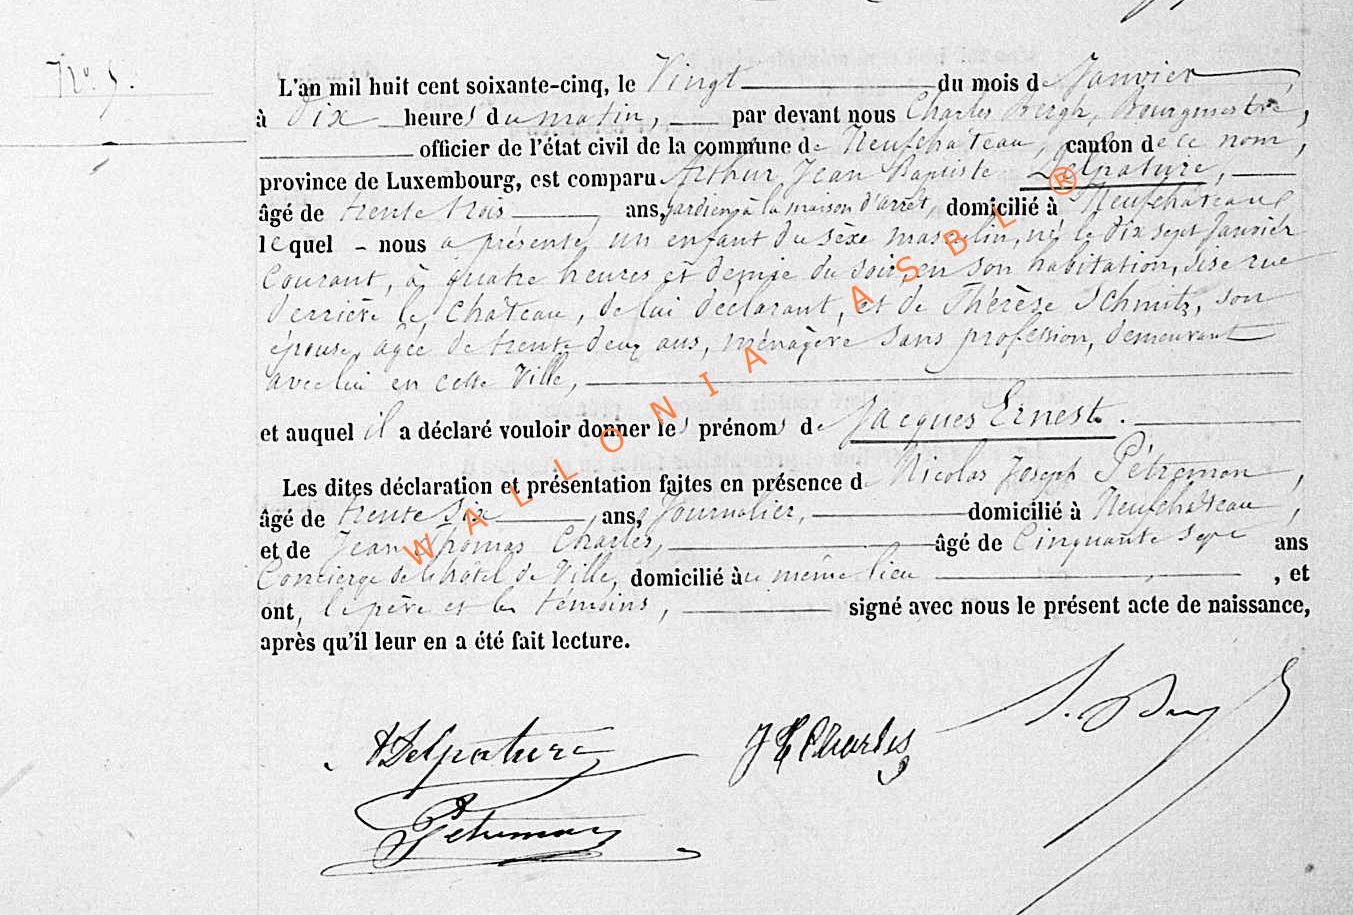 N° 5.
L'an mil huit cent soixante-cinq, le Vingt du mois de Janvier,
à Dix heures du matin, par devant nous Charles Bergh, Bourgmestre,
officier de l'état civil de la commune de Neufchateau, canton de ce nom,
province de Luxembourg, est comparu Arthur Jean Baptiste Delpature,
âgé de trente trois ans, gardien à la maison d'arrêt, domicilié à Neufchateau
lequel - nous a présenté un enfant du sèxe masculin, né le dix sept Janvier
courant, à quatre heures et demie du soir, en son habitation, sise rue
derrière le Château, de lui déclarant, et de Thérèse Schmitz, son
épouse, agée de trente deux ans, ménagère sans profession, demeurant
avec lui en cette Ville,
et auquel il a déclaré vouloir donner les prénoms de Jacques Ernest.
Les dites déclaration et présentation faites en présence de Nicolas Joseph Pétremon,
âgé de trente six ans, Journalier, domicilié à Neufchateau,
et de Jean Thomas Charles, âgé de Cinquante sept ans
Concierge de l'hôtel de Ville, domicilié au même lieu, et
ont, le père et les témoins, signé avec nous le présent acte de naissance,
après qu'il leur en a été fait lecture.
WALLONIA ASBL ®
A Delpature
J T Charles
Pétremon